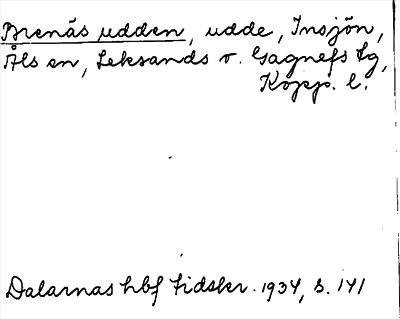 Brenäs udden, udde, Insjön,
Åls sn, Leksands o. Gagnefs tg,
Kopp. l.
Dalarnas hbf tidskr. 1934, s. 141